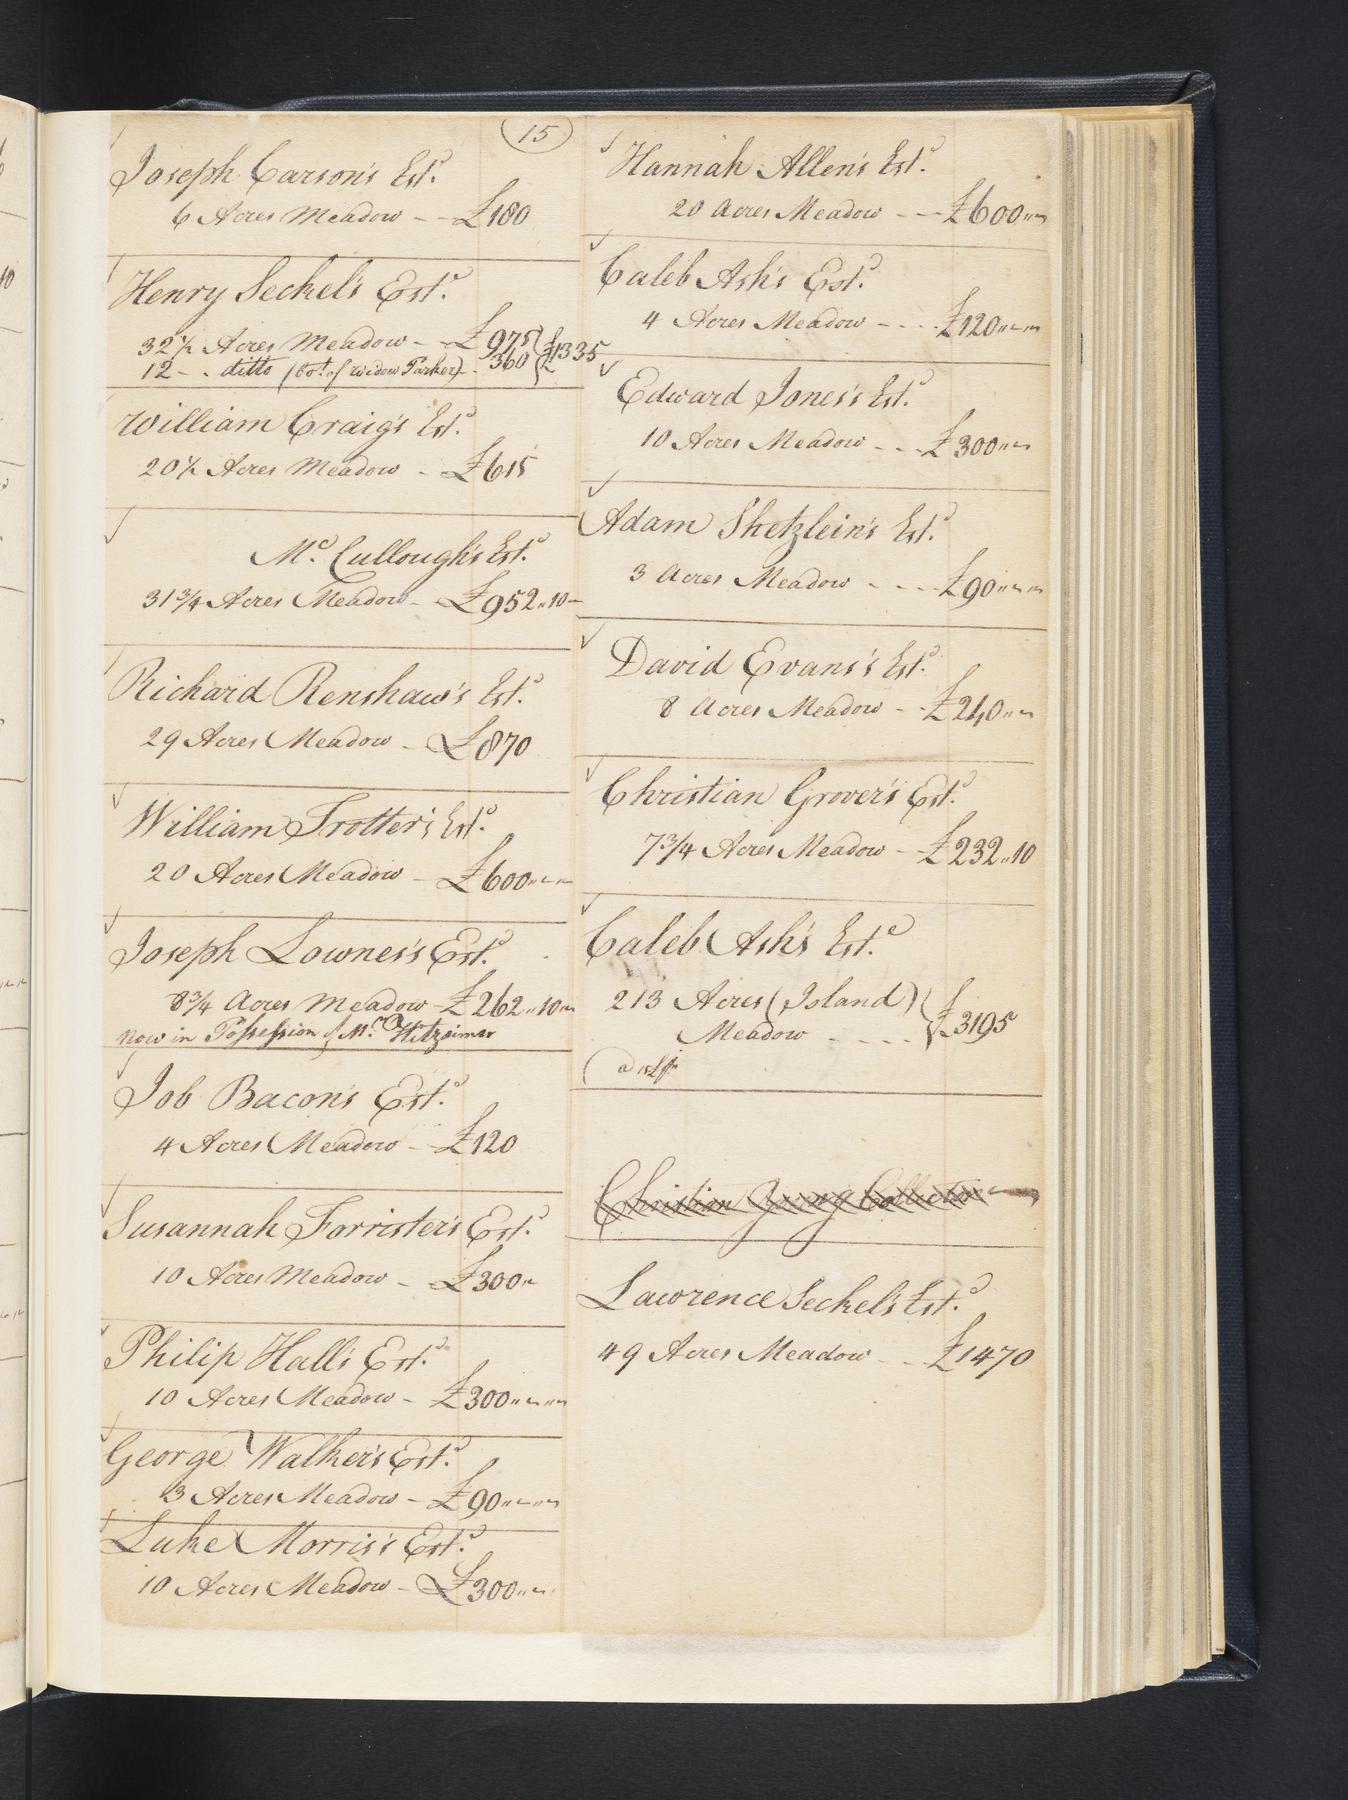 15
Joseph Carson's Estd.
6 Acres Meadow -- £180
Henry Seckel's Estd.
32½ Acres Meadow -- £975
12 -. ditto (bot. of widow Parker) - 360 } £1335
William Craig's Estd.
20½ Acres Meadow -- £615
Mc. Cullough's Estd.
31¾ Acres Meadow -- £952"10-
Richard Renshaw's Estd.
29 Acres Meadow - £870
William Trotter's Estd.
20 Acres Meadow - £600"-"-
Joseph Lownes's Estd.
8¾ Acres Meadow - £262"10"-
Now in Possession of Mr. Hitzeimer
Job Bacon's Estd.
4 Acres Meadow -- £120
Susannah Forrister's Estd.
10 Acres Meadow - £300"
Philip Hall's Estd.
10 Acres Meadow - £300"-"-
George Walker's Estd.
3 Acres Meadow - £90"-"-
Luke Morris's Estd.
10 Acres Meadow - £300"-
Hannah Allen's Estd.
20 Acres Meadow --- £600"-
Caleb Ash's Estd.
4 Acres Meadow ---- £120"-"-
Edward Jones's Estd.
10 Acres Meadow --- £300"-
Adam Shetzlein's Estd.
3 Acres Meadow ---- £90"-"-
David Evans's Estd.
8 Acres Meadow -- £240"-
Christian Grover's Estd.
7¾ Acres Meadow -- £232"10
Caleb Ash's Estd.
213 Acres (Island)
Meadow ----- } £3195
Christian Young Collector
Lawrence Seckel's Estd.
49 Acres Meadow -- £1470